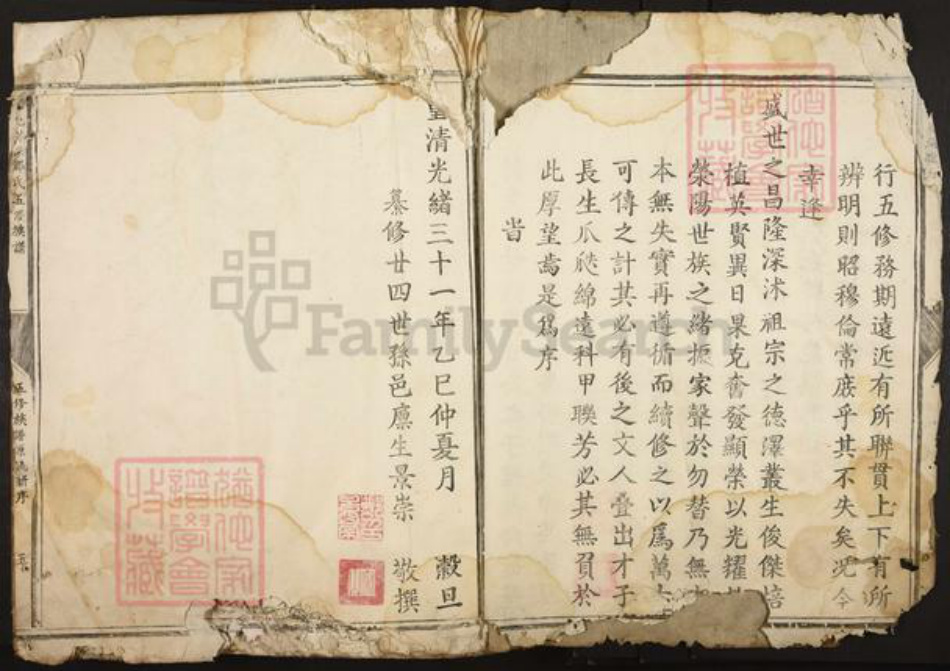 行五修務期遠近有所聯貫上下有所
辨明則昭穆倫常庶乎其不失矣况今
幸逢
盛世之昌隆深沭祖宗之德澤叢生俊傑培
植英賢異日果克奮發顯榮以光耀
滎陽世族之緒振家聲於勿替乃無
本無失實再遵循而續修之以爲萬
可傳之計其必有後之文人疊出才子
長生瓜瓞綿遠科甲聯芳必其無負於
此厚望焉是爲序
旹
皇清光緒三十一年乙巳仲夏月 穀旦
纂修廿四世孫邑廩生景崇 敬撰
氏五修族譜
五修族譜源流併序
譜學會
收藏
譜學會
收藏
FamilySearch